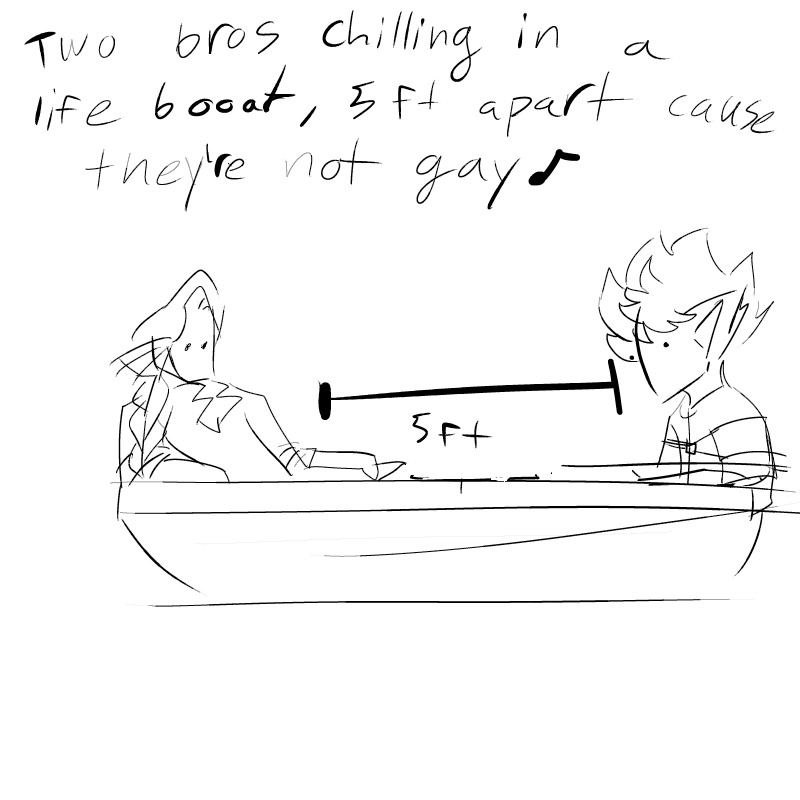 Two bros chilling in a
life booat, 5 ft apart cause
they're not gay♪
5ft